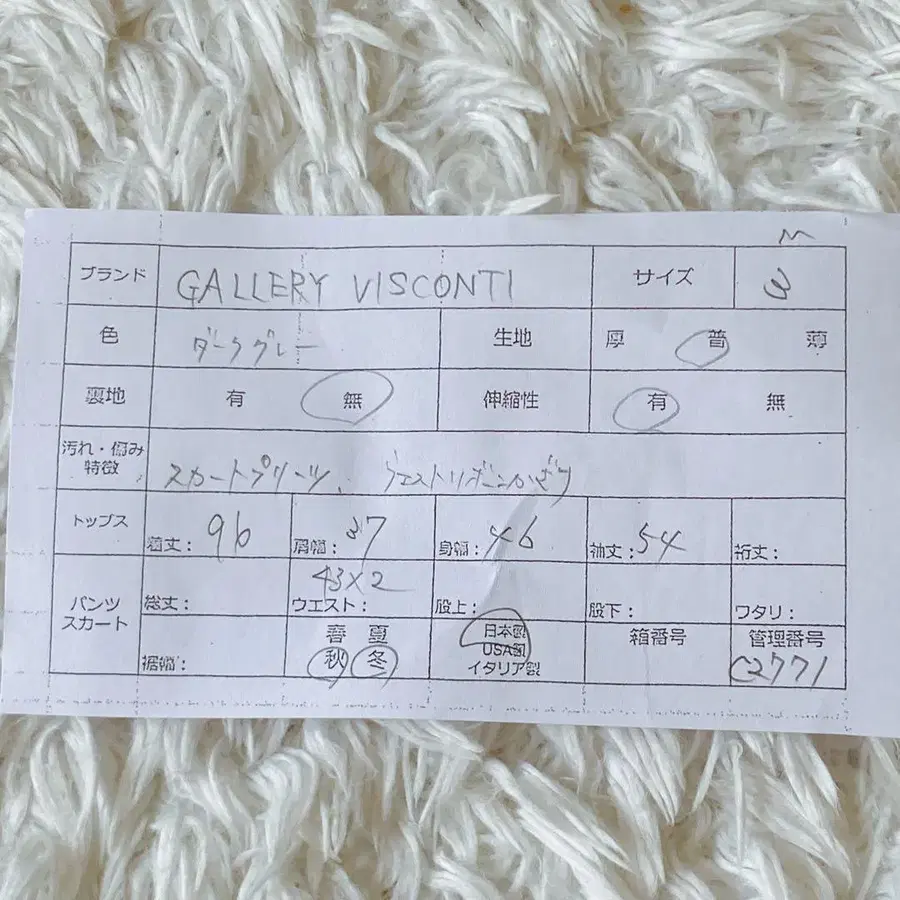 M
ブランド GALLERY VISCONTI サイズ 3
色 ダークグレー 生地 厚 普 薄
裏地 有 無 伸縮性 有 無
汚れ・傷み
特徴 スカートプリーツ、ウエストリボンかざり
トップス 着丈: 96 肩幅: 37 身幅: 46 袖丈: 54 裄丈:
パンツ
スカート 総丈: ウエスト: 43×2 股上: 股下: ワタリ:
裾幅: 春 夏
秋 冬
日本製
USA製
イタリア製
箱番号
管理番号
C2771